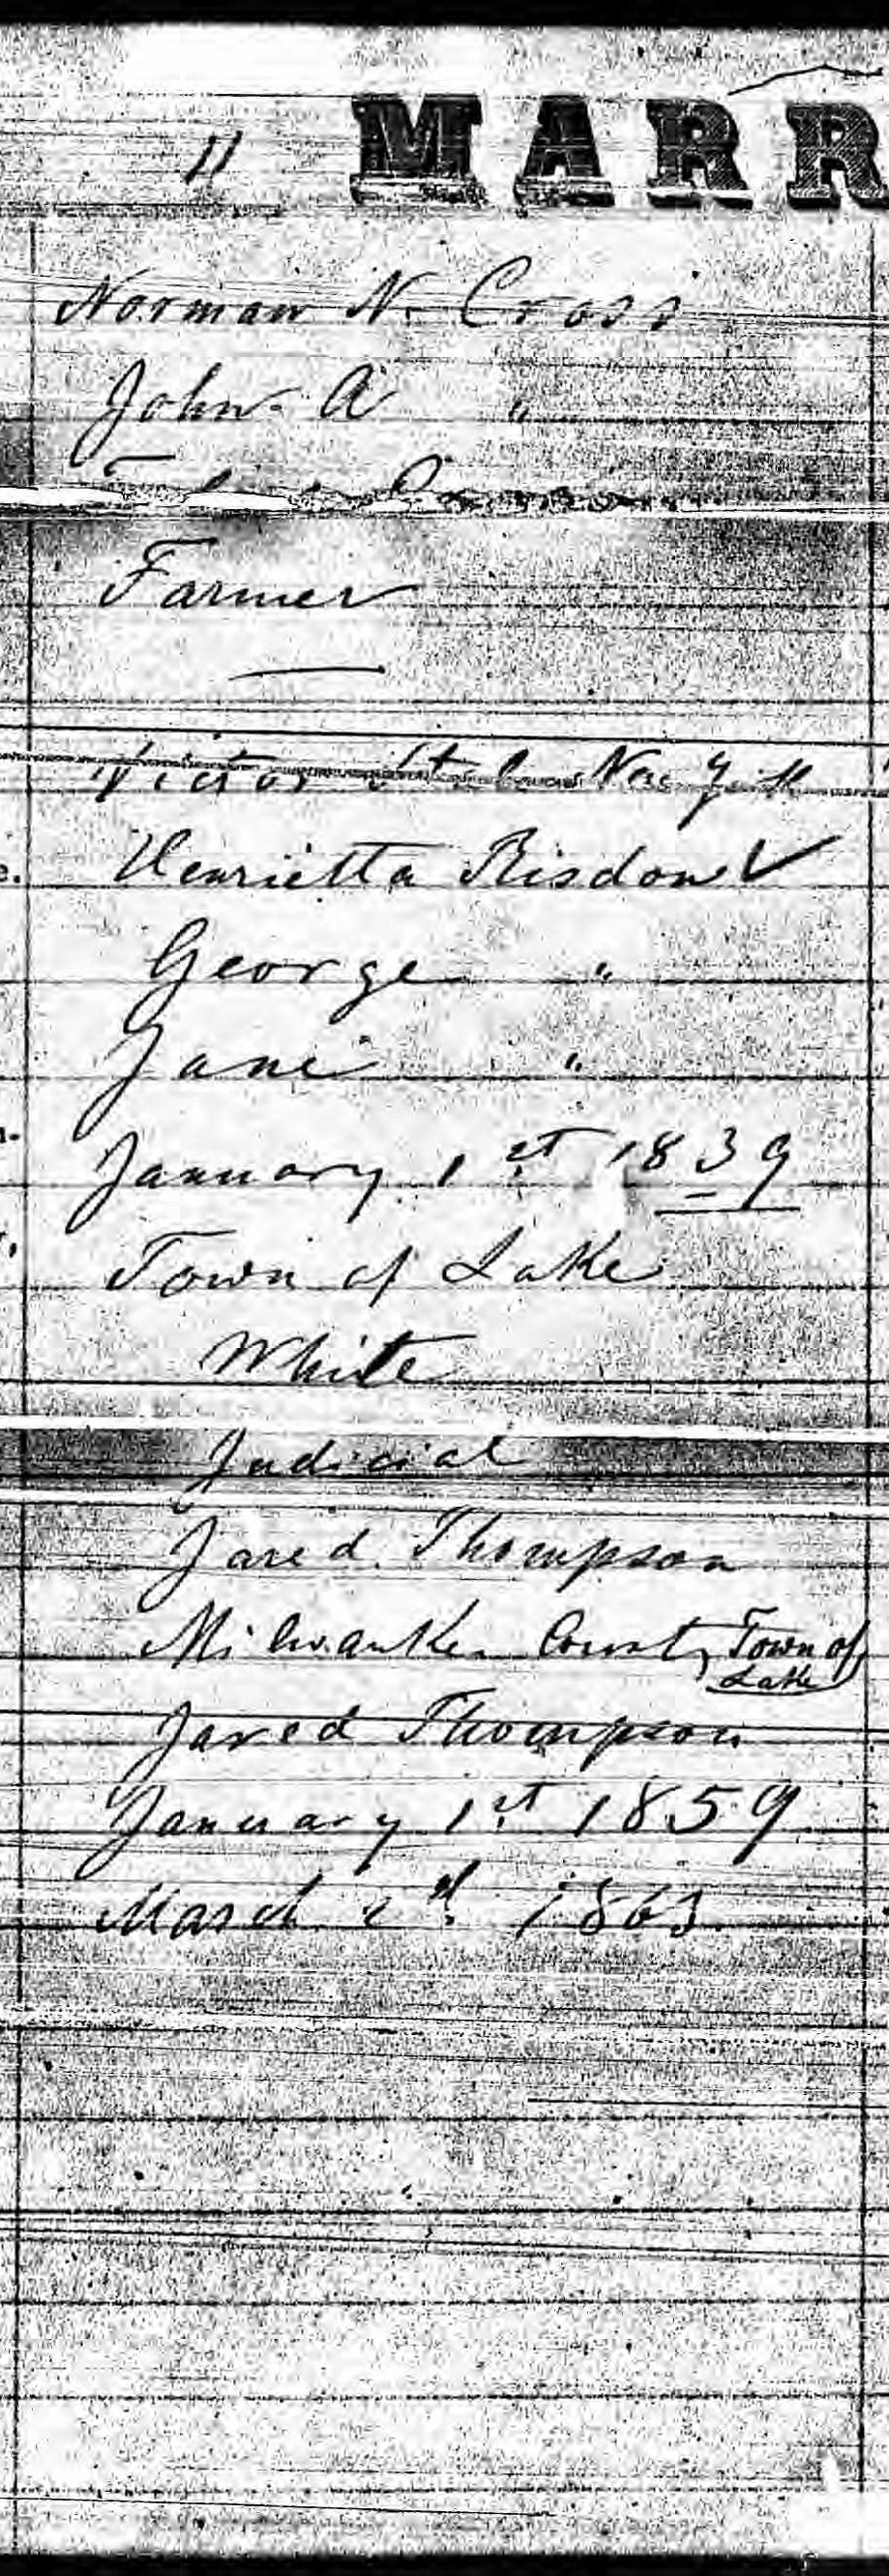 11 MARR
Norman N. Cross
John A "
Farmer
Victor New York
e. Henrietta Risdon ✓
George "
Jane "
January 1st 1839
Town of Lake
White
Judicial
Jared Thompson
Milwaukee County Town of
Lake
Jared Thompson
January 1st 1859
March 1863